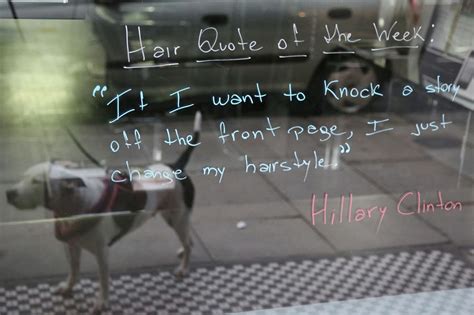 Hair Quote of the Week:
"If I want to Knock a story
off the front page, I just
change my hairstyle."
Hillary Clinton